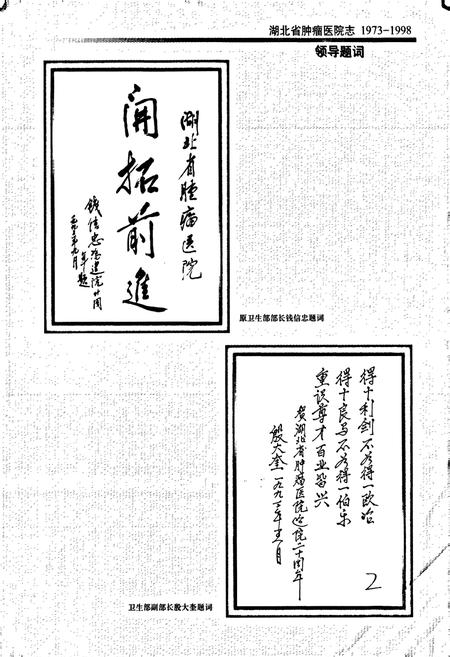 湖北省肿瘤医院志 1973-1998
领导题词
湖北省腫瘤医院
開拓前進
钱信忠为建院廿周
年题
九月
原卫生部部长钱信忠题词
得十利剑不若得一欧冶
得十良马不若得一伯乐
重识尊才百业皆兴
贺湖北省肿瘤医院建院二十周年
殷大奎一九九三年
2
卫生部副部长殷大奎题词